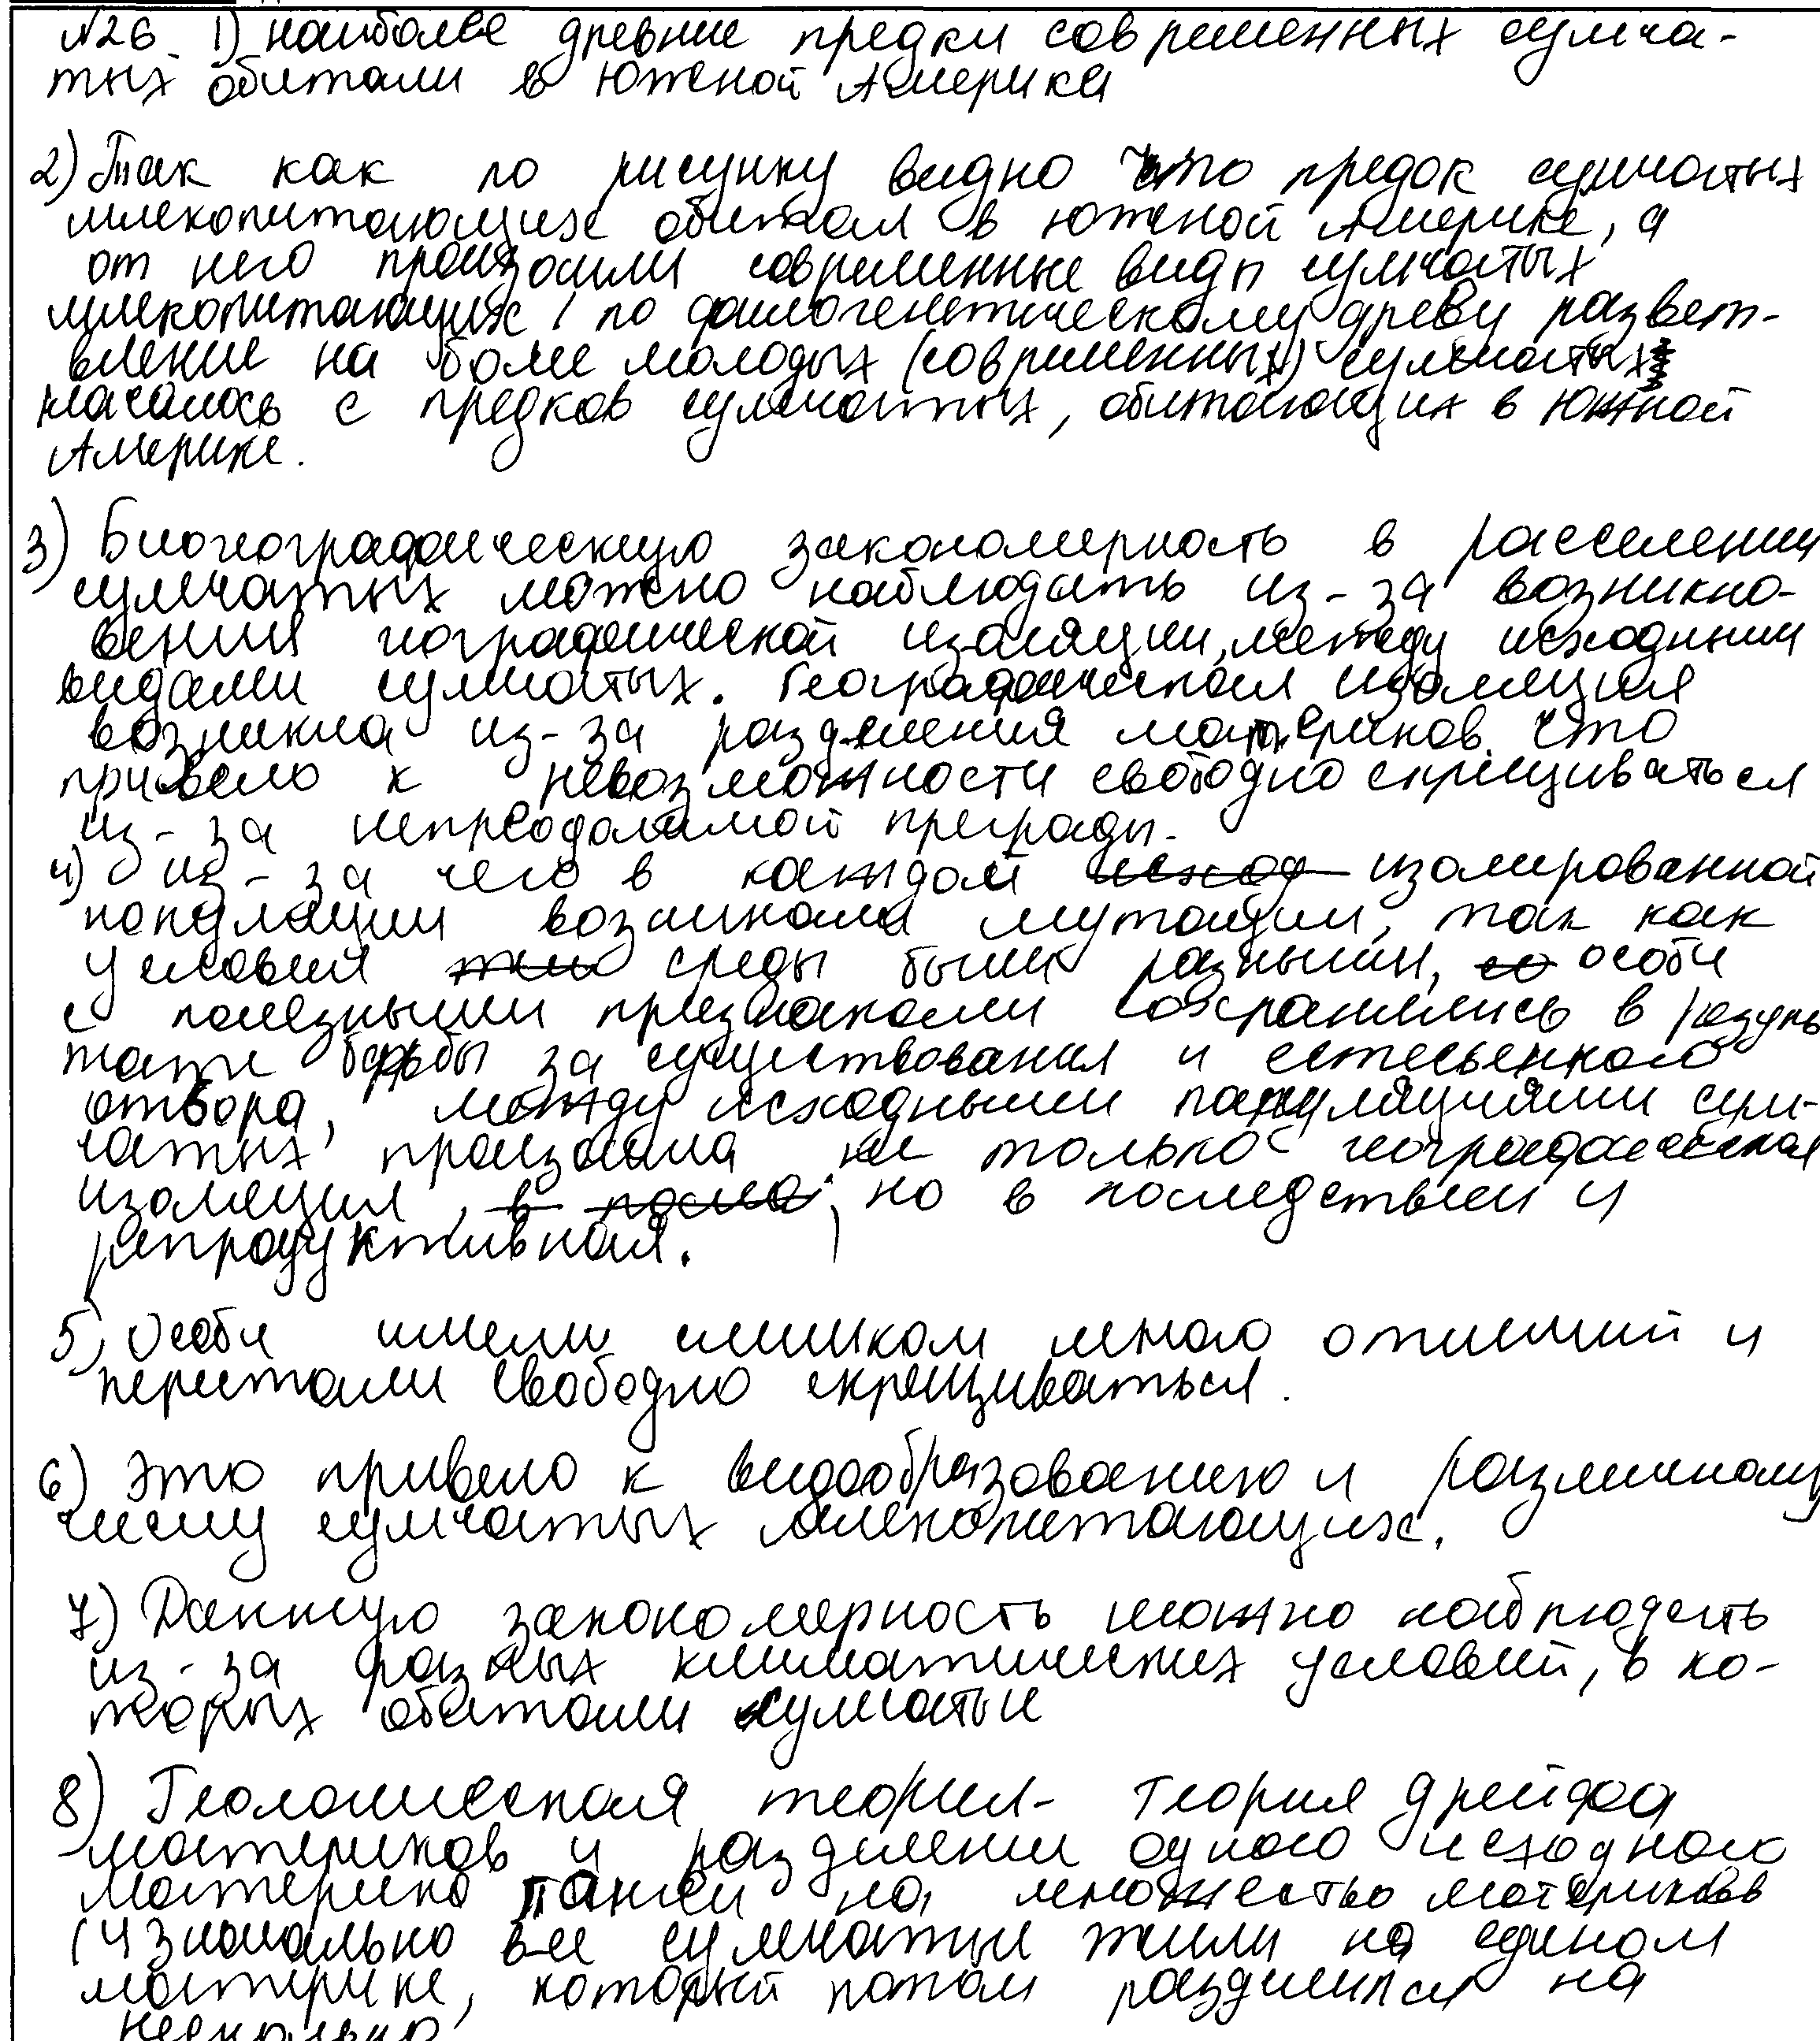 №26 1) наиболее древние предки современных сумча-
тых обитали в Южной Америке
2) Так как по рисунку видно что предок сумчатых
млекопитающих обитал в Южной Америке, а
от него произошли современные виды сумчатых
млекопитающих / по филогенетическому древу развет-
вление на более молодых (современных) сумчатых
началось с предков сумчатых, обитающих в Южной
Америке.
3) Биогеографическую закономерность в расселении
сумчатых можно наблюдать из-за возникно-
вения географической изоляции, между исходными
видами сумчатых. Географическая изоляция
возникла из-за разделения материков, что
привело к невозможности свободно скрещиваться
из-за непреодолимой преграды.
4) из-за чего в каждой изолированной
популяции возникали мутации, так как
условия среды были разными, особи
с полезными признаками сохранились в резуль
тате борьбы за существования и естесвенного
отбора, между исходными популяциями сум-
чатых произошла не только географическая
изоляция, но в последствии и
репродуктивная.
5) Особи имели слишком много отличий и
перестали свободно скрещиваться.
6) это привело к видообразованию и различному
числу сумчатых млекопитающих.
7) Данную закономерность можно наблюдать
из-за разных климатических условий, в ко-
торых обитали сумчатые
8) Геологическая теория - теория дрейфа
материков и разделении одного исходного
материка Пангеи на множество материков
(Изначально все сумчатые жили на едином
материке, который потом разделился на
несколько